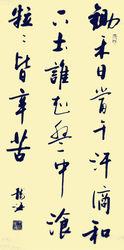 鋤禾日當午汗滴和
下土誰知盤中飡
粒〻皆辛苦